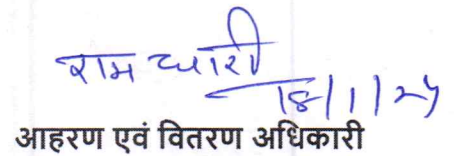 राम
18/1/25
आहरण एवं वितरण अधिकारी